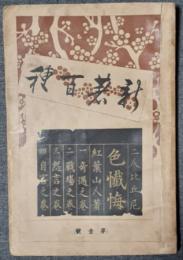 新著百種
二人比丘尼
色懺悔
紅葉山人著
一 奇遇之卷
二 戰場之卷
三 怨言之卷
四 自害之卷
第壹號